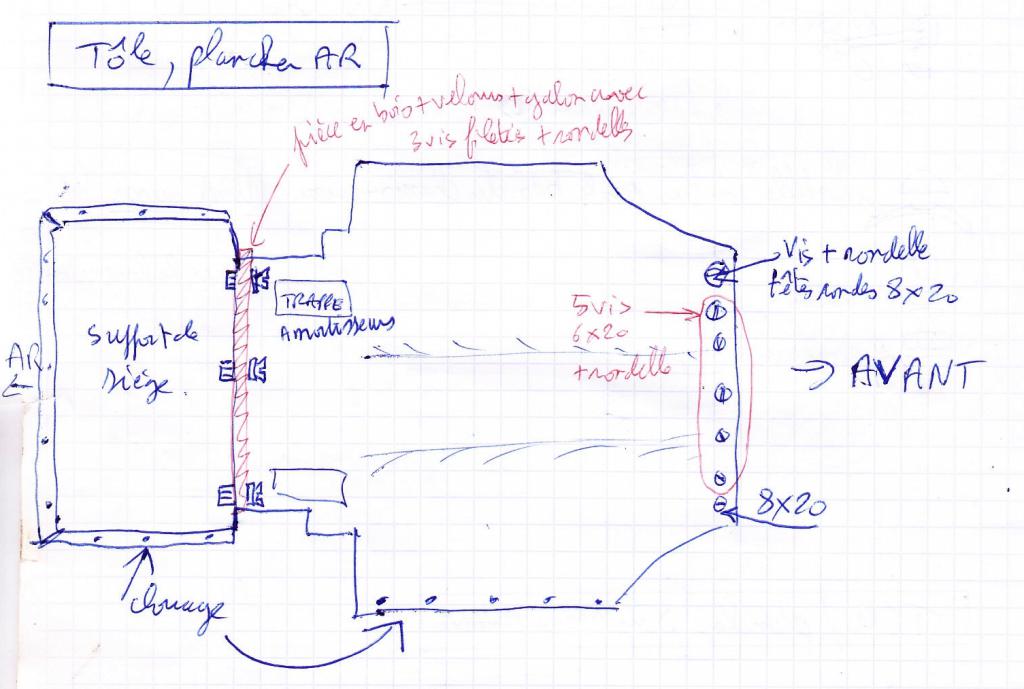 Tôle, plancher AR
pièce en bois + velours + galon avec
3 vis filetés + rondelles
Vis + rondelle
têtes rondes 8x20
TRAPPE
Amortisseurs
5 vis
6x20
+ rondelle
support de
siège.
AR.
AVANT
8x20
clouage